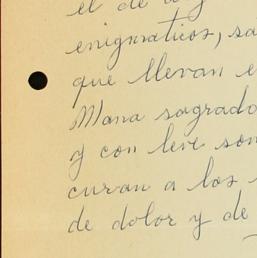 el de
enigmaticos, sa
que llevan e
Mana sagrado
y con leve son
curan a los
de dolor y de